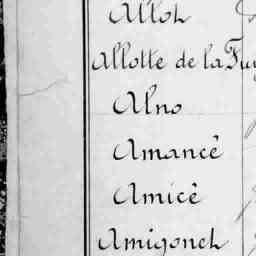 Alloh
Allotte de la Fuy
Alno
Amancè
Amicè
Amigonch